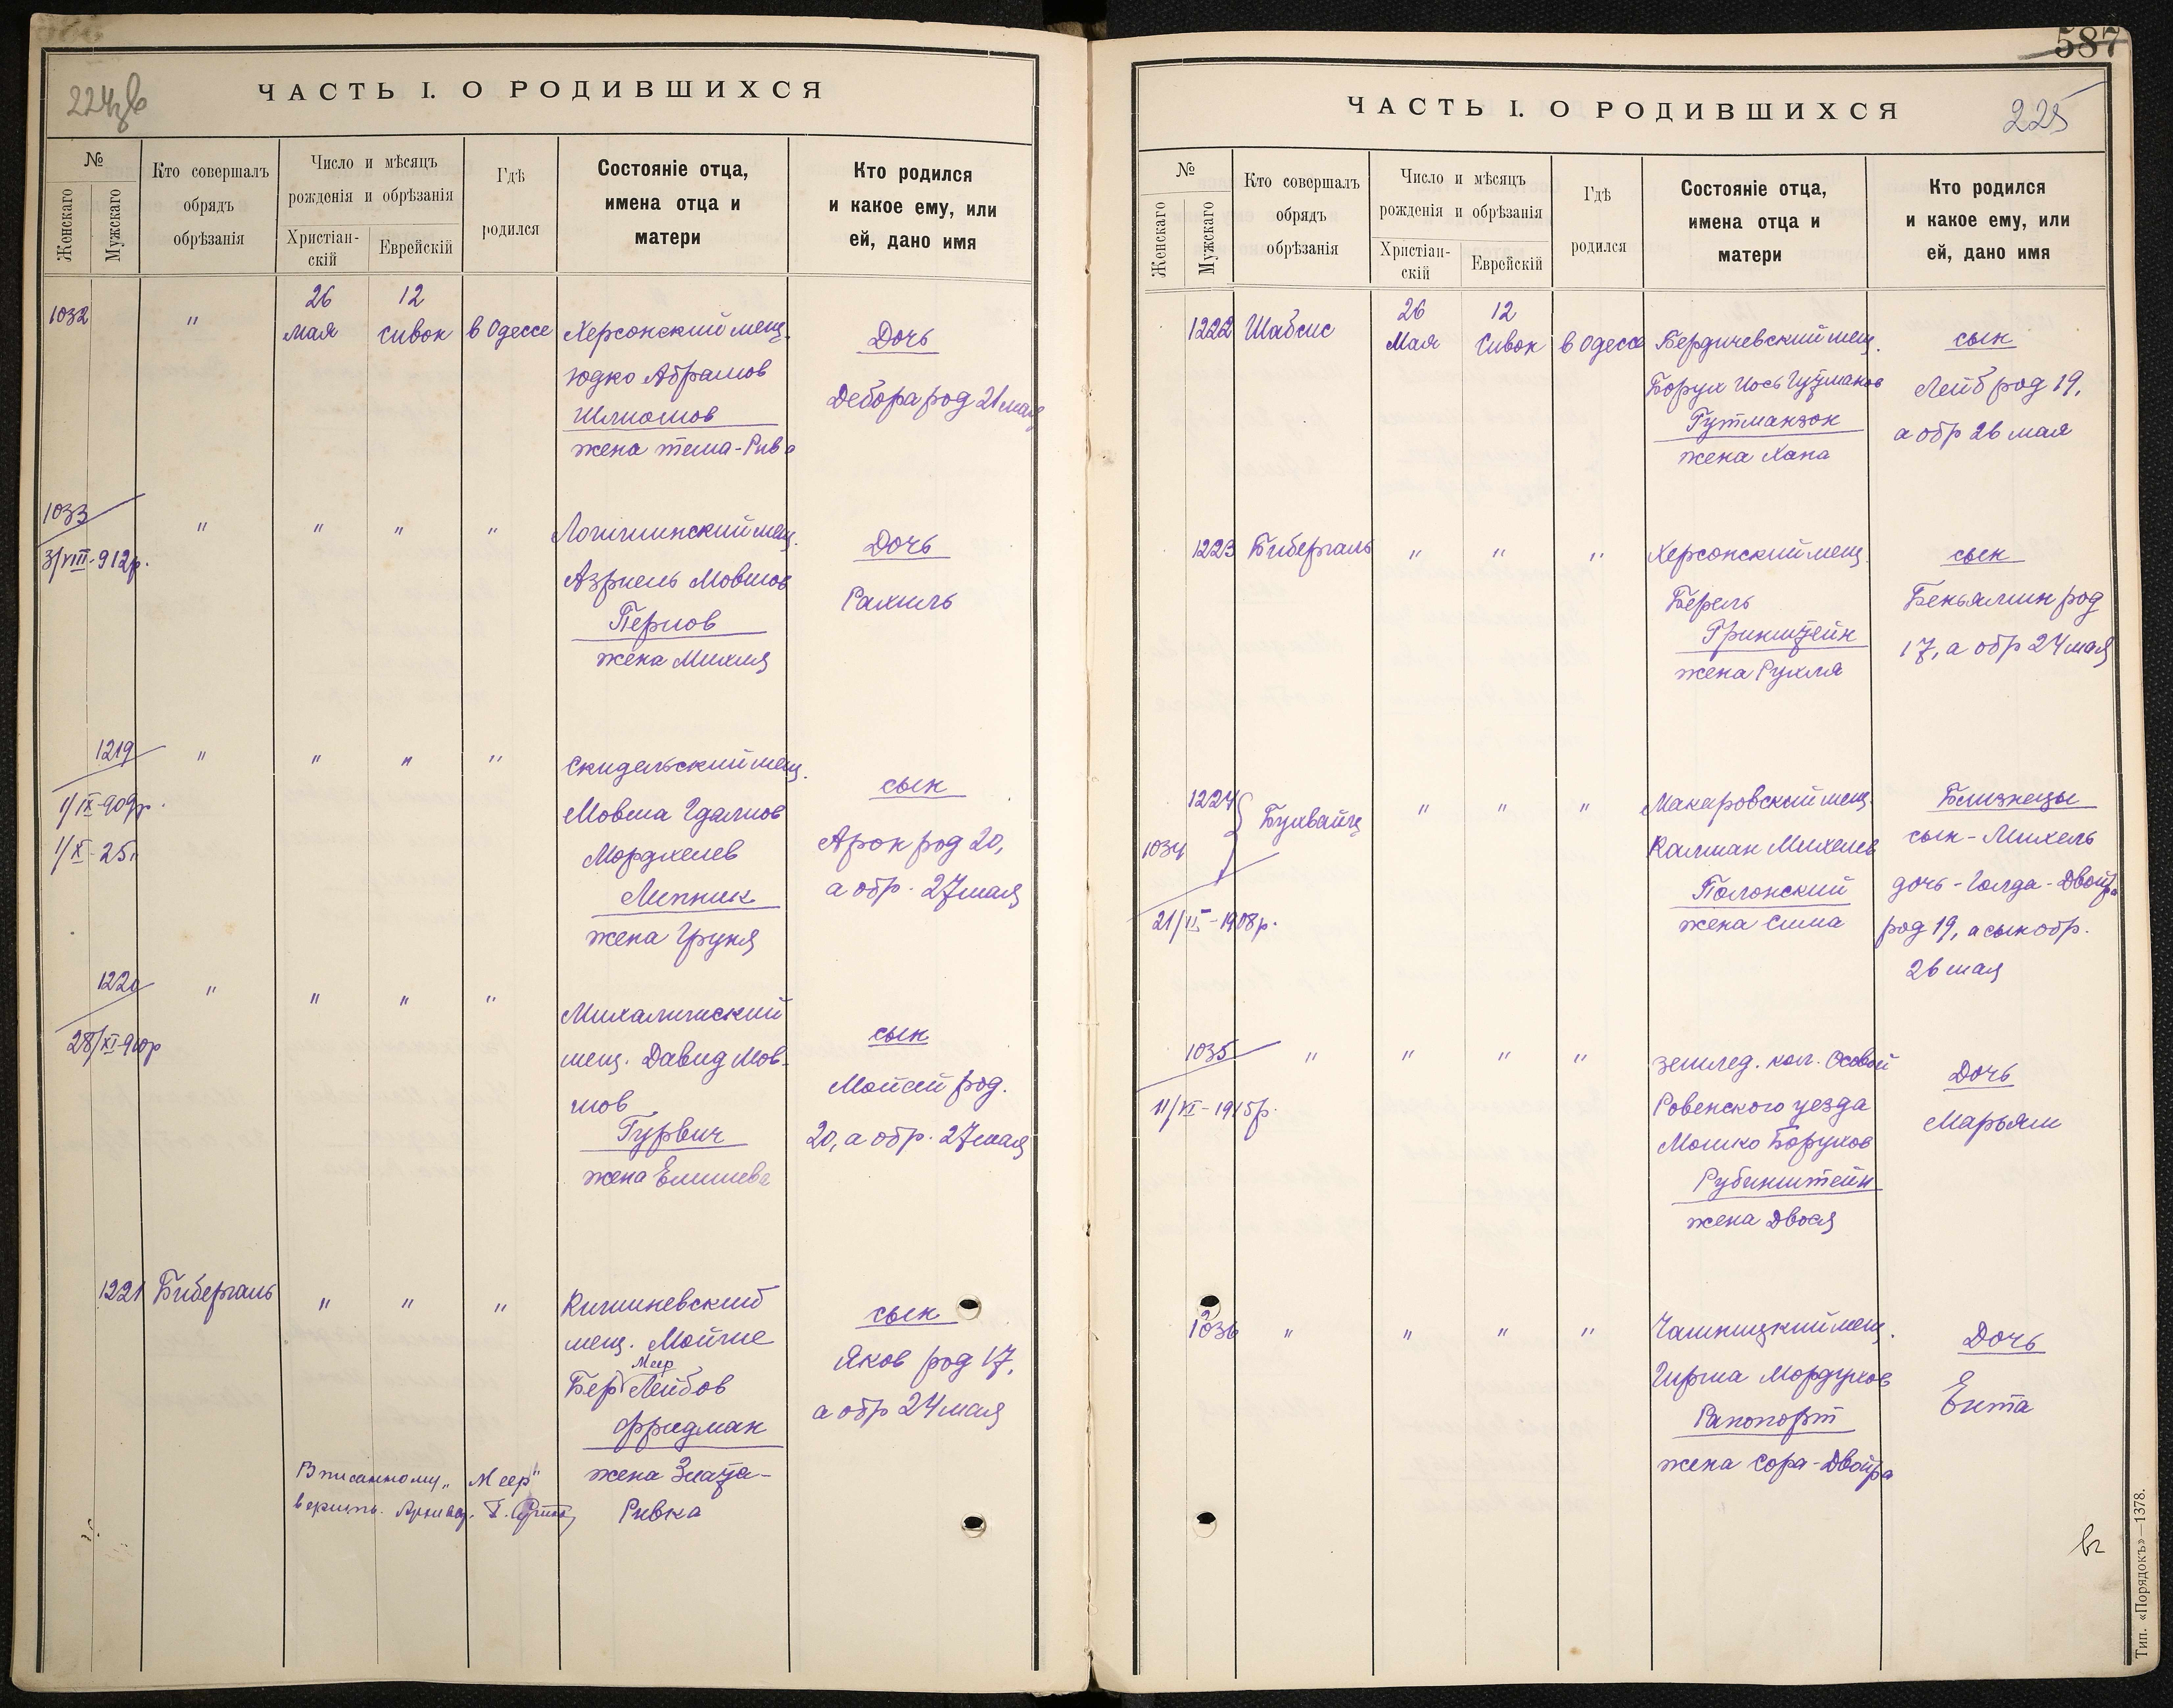 ЧАСТЬ I. О РОДИВШИХСЯ
№
Женскаго
Мужскаго
Кто совершалъ
обрядъ
обрѣзанія
Число и мѣсяцъ
рожденія и обрѣзанія
Христіан-
скій
Еврейскій
Гдѣ
родился
Состояніе отца,
имена отца и
матери
Кто родился
и какое ему, или
ей, дано имя
1032
"
26
мая
12
Сивон
в Одессе
Херсонский мещ.
Юдко Абрамов
Шлиомов
жена тема-Рива
Дочь
Дебора род 21 мая
1033
3/VIII-912р.
" " " "
Логишинский мещ.
Азриель Мовшов
Перлов
жена Михля
Дочь
Рахиль
1219
1/IX-909р.
1/X-25
" " " "
Скидельский мещ.
Мовша Гдалиов
Мордхелев
Липник
жена Груня
сын
Арон род 20,
а обр. 27 мая
1220
28/XI-910р
" " " "
Михалишский
мещ. Давид Мов-
шов
Гурвич
жена Елишева
сын
Мойсей род.
20, а обр. 27 мая
1221
Бибергаль
" " "
Кишиневский
мещ. Мойше
Меер
Бер Лейбов
Фридман
жена Злата-
Ривка
сын
Яков род 17,
а обр 24 мая
Вписанному „Меер"
587
ЧАСТЬ I. О РОДИВШИХСЯ
225
№
Женскаго
Мужскаго
Кто совершалъ
обрядъ
обрѣзанія
Число и мѣсяцъ
рожденія и обрѣзанія
Христіан-
скій
Еврейскій
Гдѣ
родился
Состояніе отца,
имена отца и
матери
Кто родился
и какое ему, или
ей, дано имя
1222
Шабсис
26
Мая
12
Сивон
в Одессе
Бердичевский мещ.
Борух Иось Гузманов
Гутманзон
жена Хана
сын
Лейб род 19,
а обр 26 мая
1223
Бибергаль
" " "
Херсонский мещ.
Берель
Гринштейн
жена Рухля
сын
Беньямин род
17, а обр 24 мая
1224
1034
Бухвайц
" " "
21/II-1908р.
Макаровский мещ.
Калман Михелев
Полонский
жена Сима
Близнецы
сын - Михель
дочь - Голда - Двойра
род 19, а сын обр.
26 мая
1035
11/VI-1915р.
" " " "
землед. кол. Осовой
Ровенского уезда
Мошко Борухов
Рубинштейн
жена Двося
Дочь
Марьям
1036
" " " "
Чашницкий мещ.
Гирша Мордухов
Рапопорт
жена Сора-Двойра
Дочь
Ента
Тип. «Порядокъ»—1378.